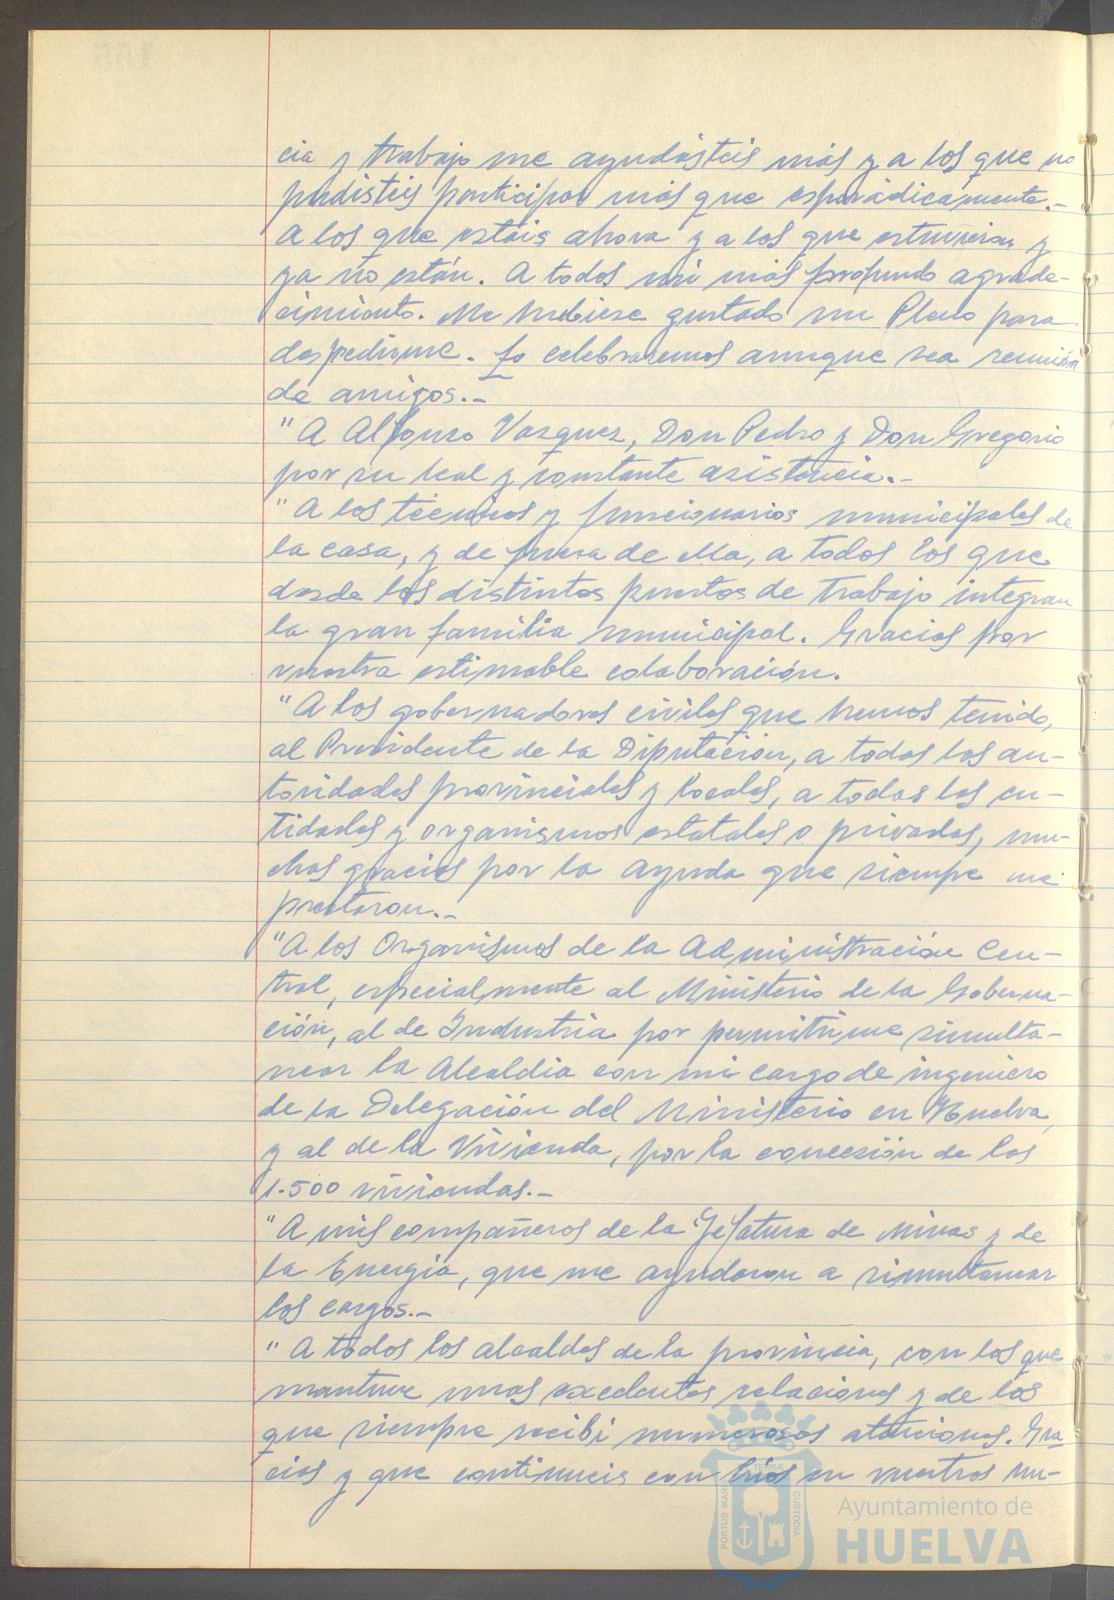 cia y trabajo me ayudásteis más y a los que no
pudisteis participar más que esporádicamente.-
A los que estáis ahora y a los que estuvieron y
ya no están. A todos mi más profundo agrade-
cimiento. Me hubiese gustado un Pleno para
despedirme. Lo celebraremos aunque sea reunión
de amigos.-
"A Alfonso Vazquez, Don Pedro y Don Gregorio
por su leal y constante asistencia.-
"A los técnicos y funcionarios municipales de
la casa, y de fuera de ella, a todos los que
desde los distintos puestos de trabajo integran
la gran familia municipal. Gracias por
vuestra estimable colaboración.
"A los gobernadores civiles que hemos tenido,
al Presidente de la Diputación, a todas las au-
toridades provinciales y locales, a todas las en-
tidades y organismos estatales o privados, mu-
chas gracias por la ayuda que siempre me
prestaron.-
"A los Organismos de la Administración Cen-
tral, especialmente al Ministerio de la Goberna-
ción, al de Industria por permitirme simulta-
near la Alcaldia con mi cargo de ingeniero
de la Delegación del Ministerio en Huelva,
y al de la Vivienda, por la concesión de las
1.500 viviendas.-
"A mis compañeros de la Jefatura de Minas y de
la Energia, que me ayudaron a simultanear
los cargos.-
"A todos los alcaldes de la provincia, con los que
mantuve unas excelentes relaciones y de los
que siempre recibi numerosas atenciones. Gra-
cias y que continueis con brios en vuestros mu-
PORTUS MARIS
TERRA
CUSTODIA
Ayuntamiento de
HUELVA